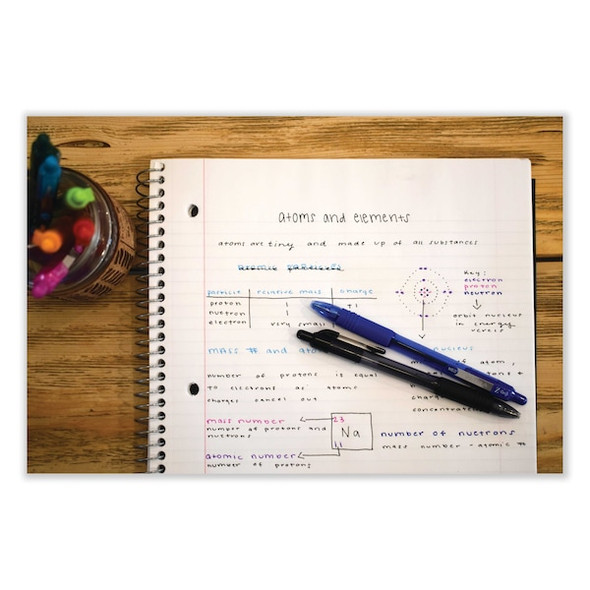 atoms and elements
atoms are tiny and made up of all substances
particle relative mass charge
proton 1 +1
nuetron 1
electron very small
Key:
electron
proton
neutron
orbit nucleus
in energy
levels
MASS # and
nucleus
number of protons is equal
to electrons as atoms
charges cancel out
mass number
number of protons and
nuetrons
atomic number
number of protons
23
Na
11
number of nuetrons
mass number - atomic #